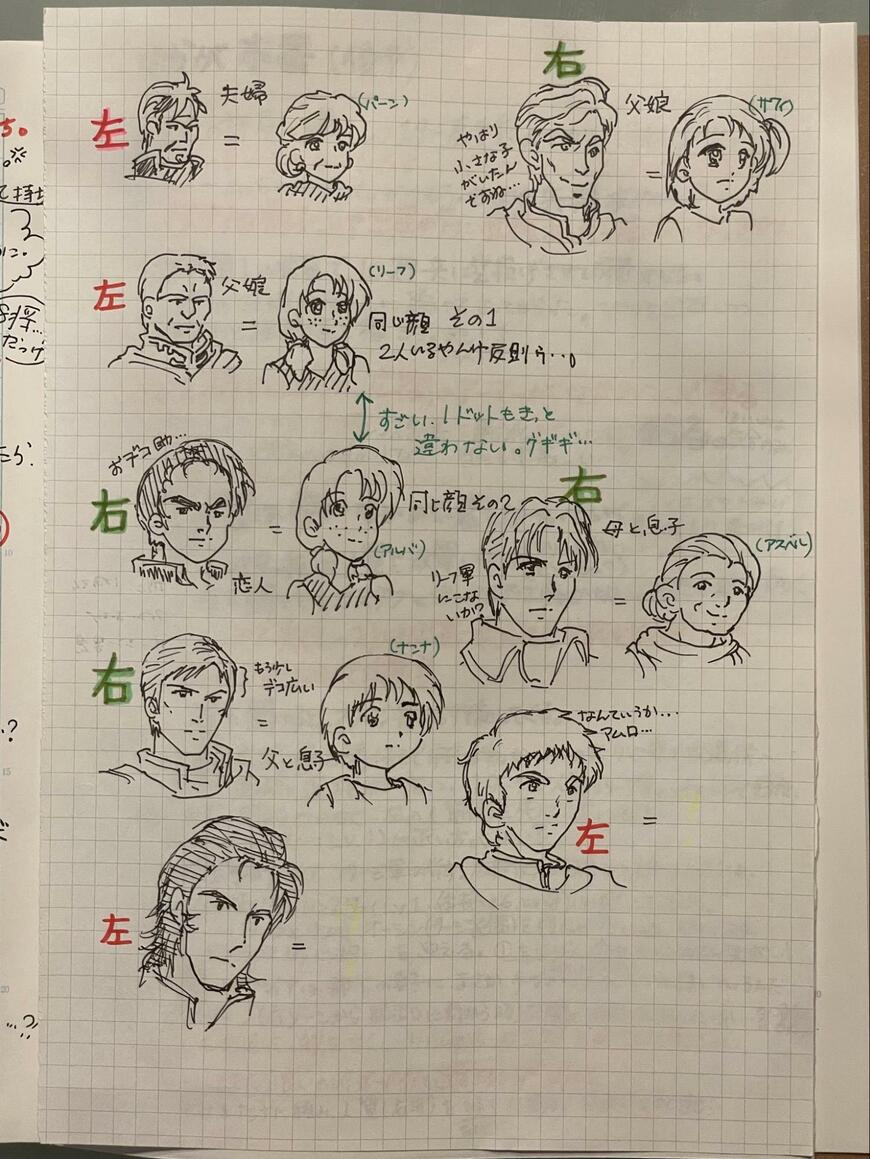 左
夫婦
=
(パーン)
右
父娘
(サフィ)
やはり
小さな子
がいたん
ですね…
=
左
父娘
=
(リーフ)
同じ顔 その1
2人いるやんけ反則ゥ…。
すごい、1ドットもきっと
違わない。グギギ…
おデコ助…
右
=
恋人
(アルバ)
同じ顔その2
右
母と息子
(アスベル)
リーフ軍
にこな
いか?
=
右
もう少し
デコ広い
=
父と息子
(ナンナ)
なんていうか...
アムロ…
左
=
左
=